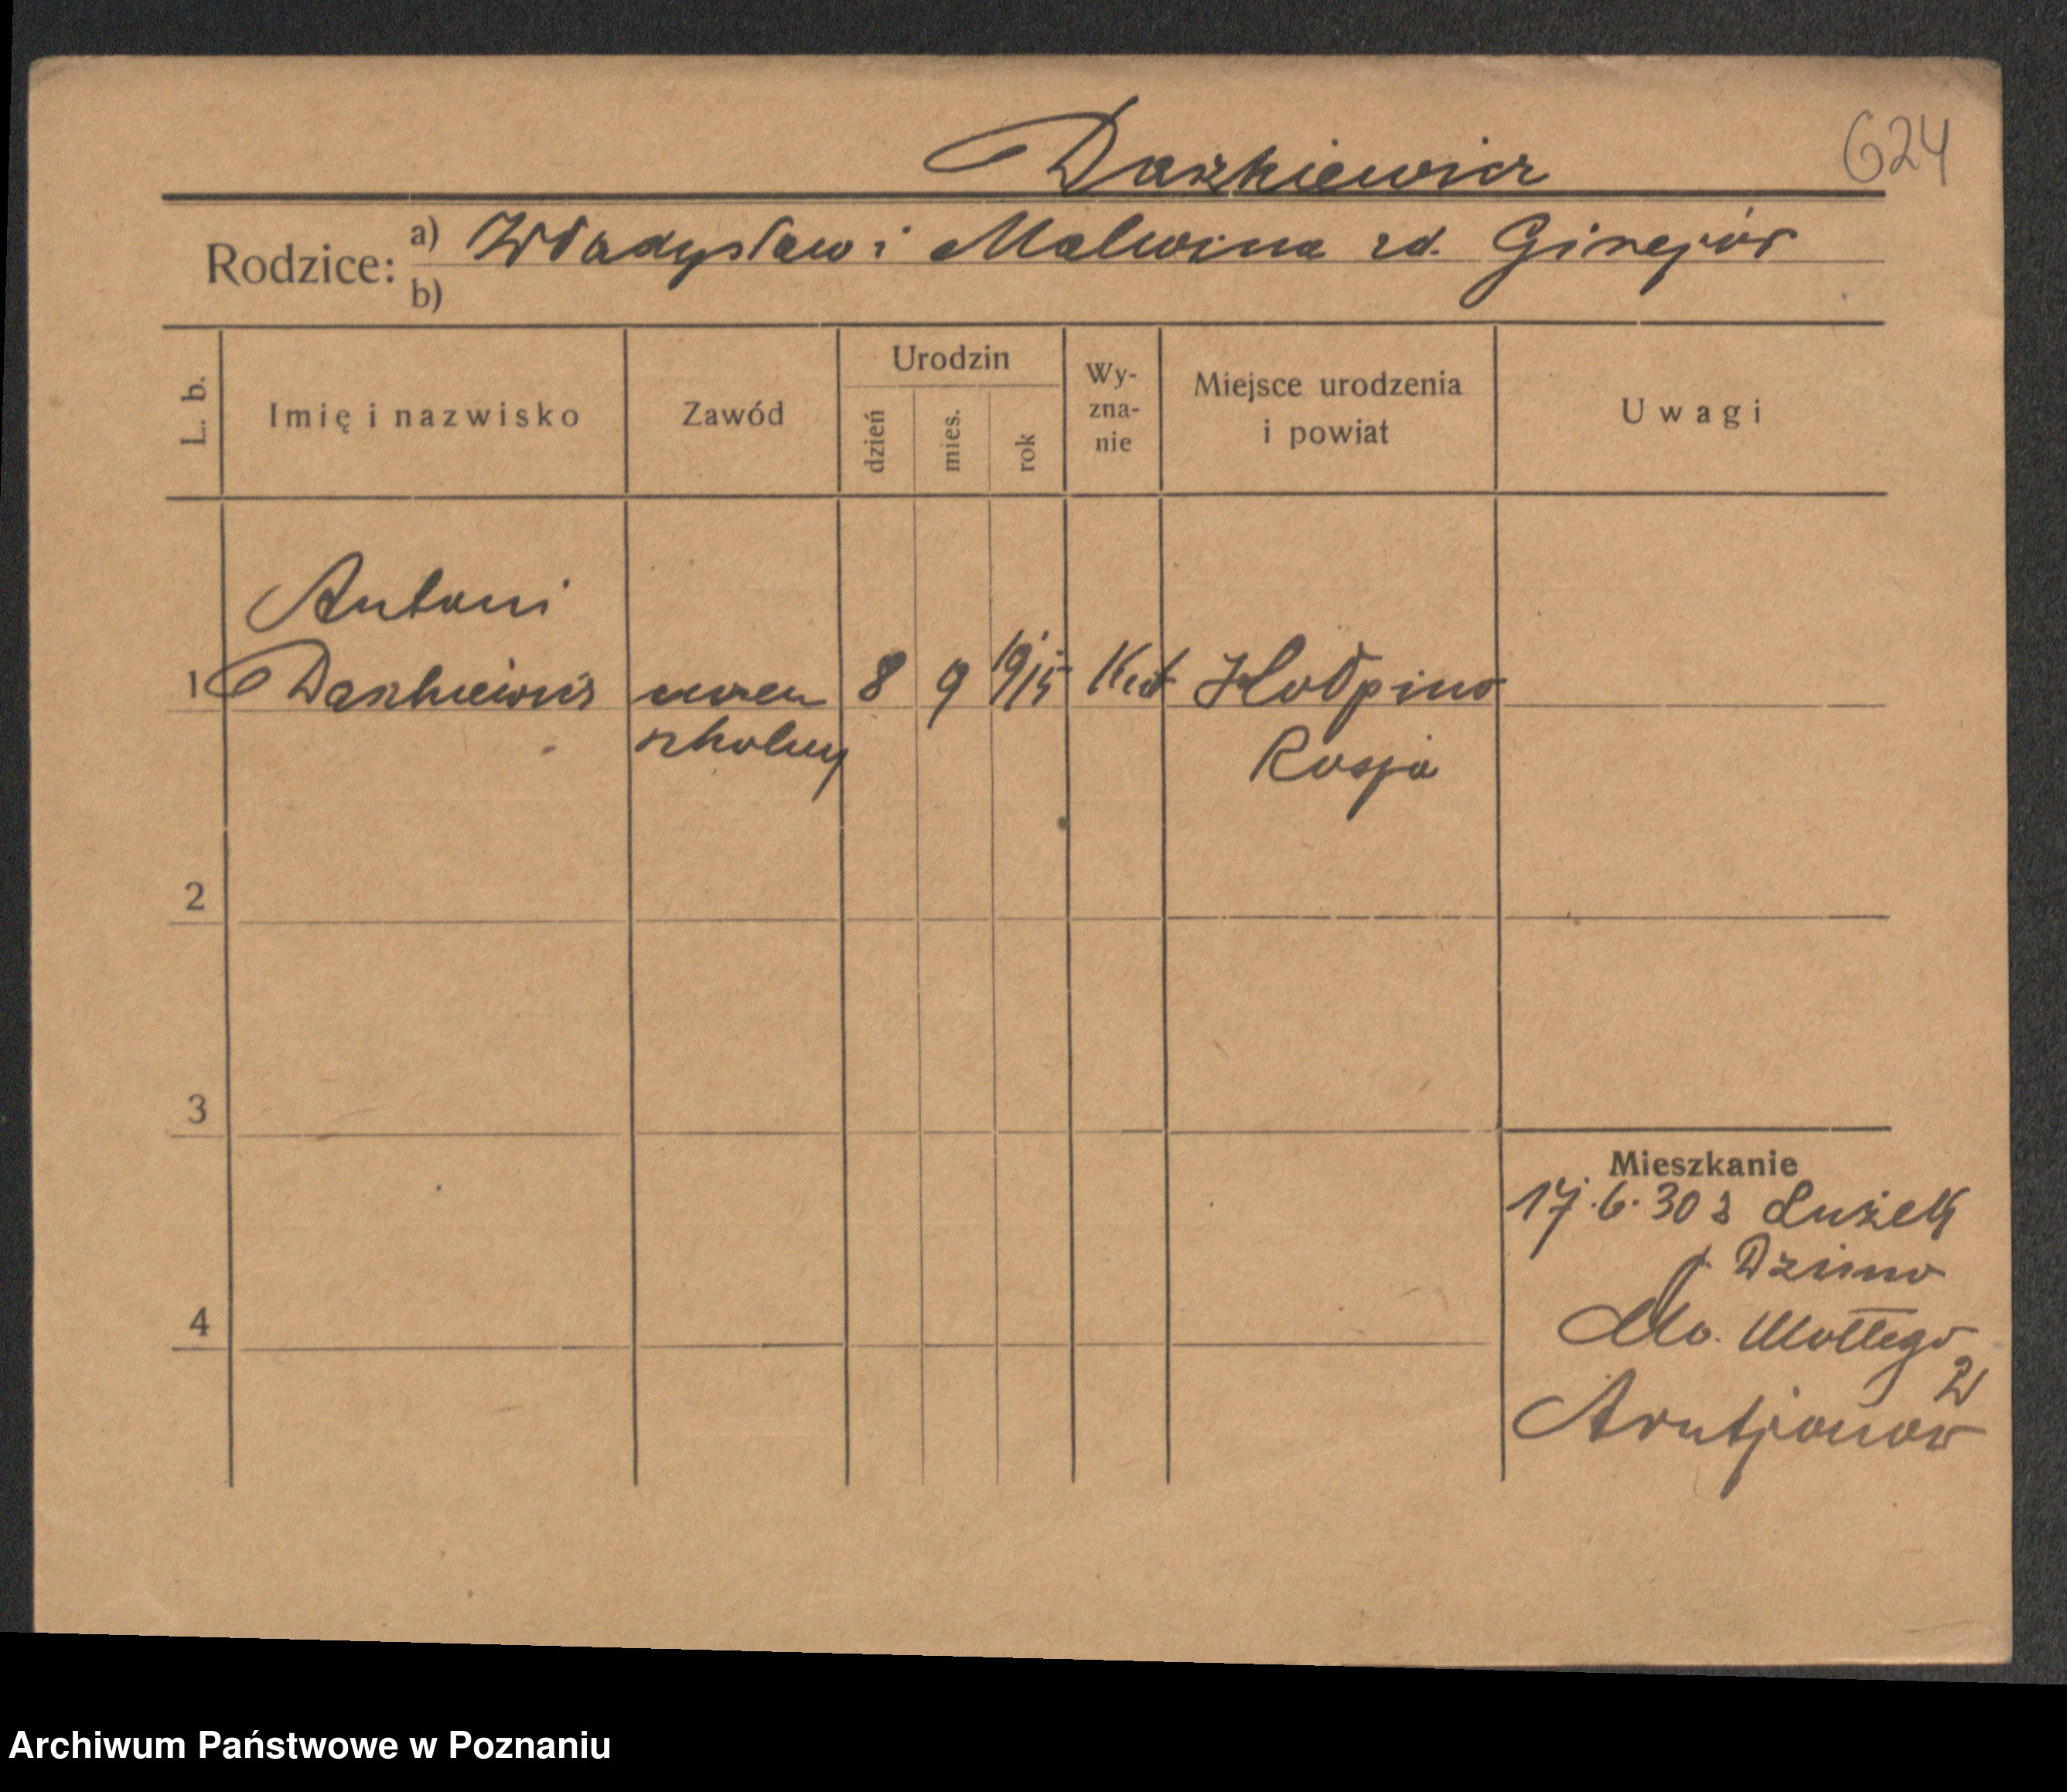 Daszkiewicz
624
Rodzice: a) Władysław i Malwina zd. Ginejór
b)
L. b.
Imię i nazwisko
Zawód
Urodzin
dzień
mies.
rok
Wy-
zna-
nie
Miejsce urodzenia
i powiat
Uwagi
Antoni
1 Daszkiewicz uczeń 8 9 1915 Kat Hołpino
szkolny
Rosja
2
3
4
Mieszkanie
17.6.30 z Łużek
p. Dzisno
Mo. Mottego
2
Arutjonow
Archiwum Państwowe w Poznaniu